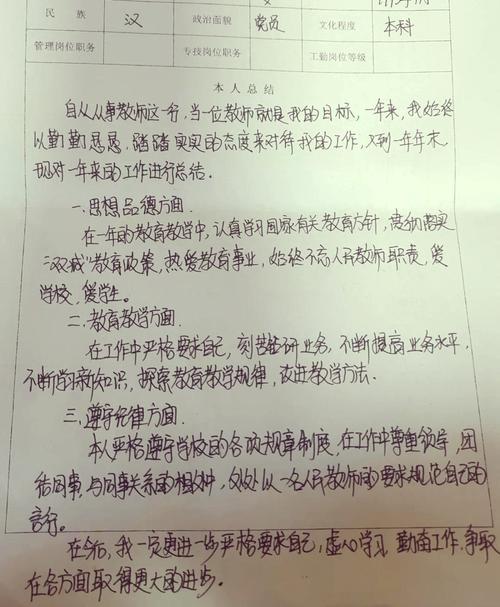 民族 汉 政治面貌 党员 文化程度 本科
管理岗位职务 专技岗位职务 工勤岗位等级
本人总结
自从从事教师这一行,当一位教师就是我的目标,一年来,我始终
以勤勤恳恳,踏踏实实的态度来对待我的工作,又到一年年末,
现对一年来的工作进行总结。
一.思想品德方面.
在一年的教育教学中,认真学习国家有关教育方针,贯彻落实
“双减”教育政策,热爱教育事业,始终不忘人民教师职责,爱
学校,爱学生。
二.教育教学方面.
在工作中严格要求自己,刻苦钻研业务,不断提高业务水平,
不断学习新知识,探索教育教学规律,改进教学方法.
三.遵守纪律方面.
本人严格遵守学校的各项规章制度,在工作中尊重领导,团
结同事,与同事关系的相处中,处处以一名人民教师的要求规范自己的
言行。
在今后,我一定更进一步严格要求自己,虚心学习,勤奋工作,争取
在各方面取得更大的进步。